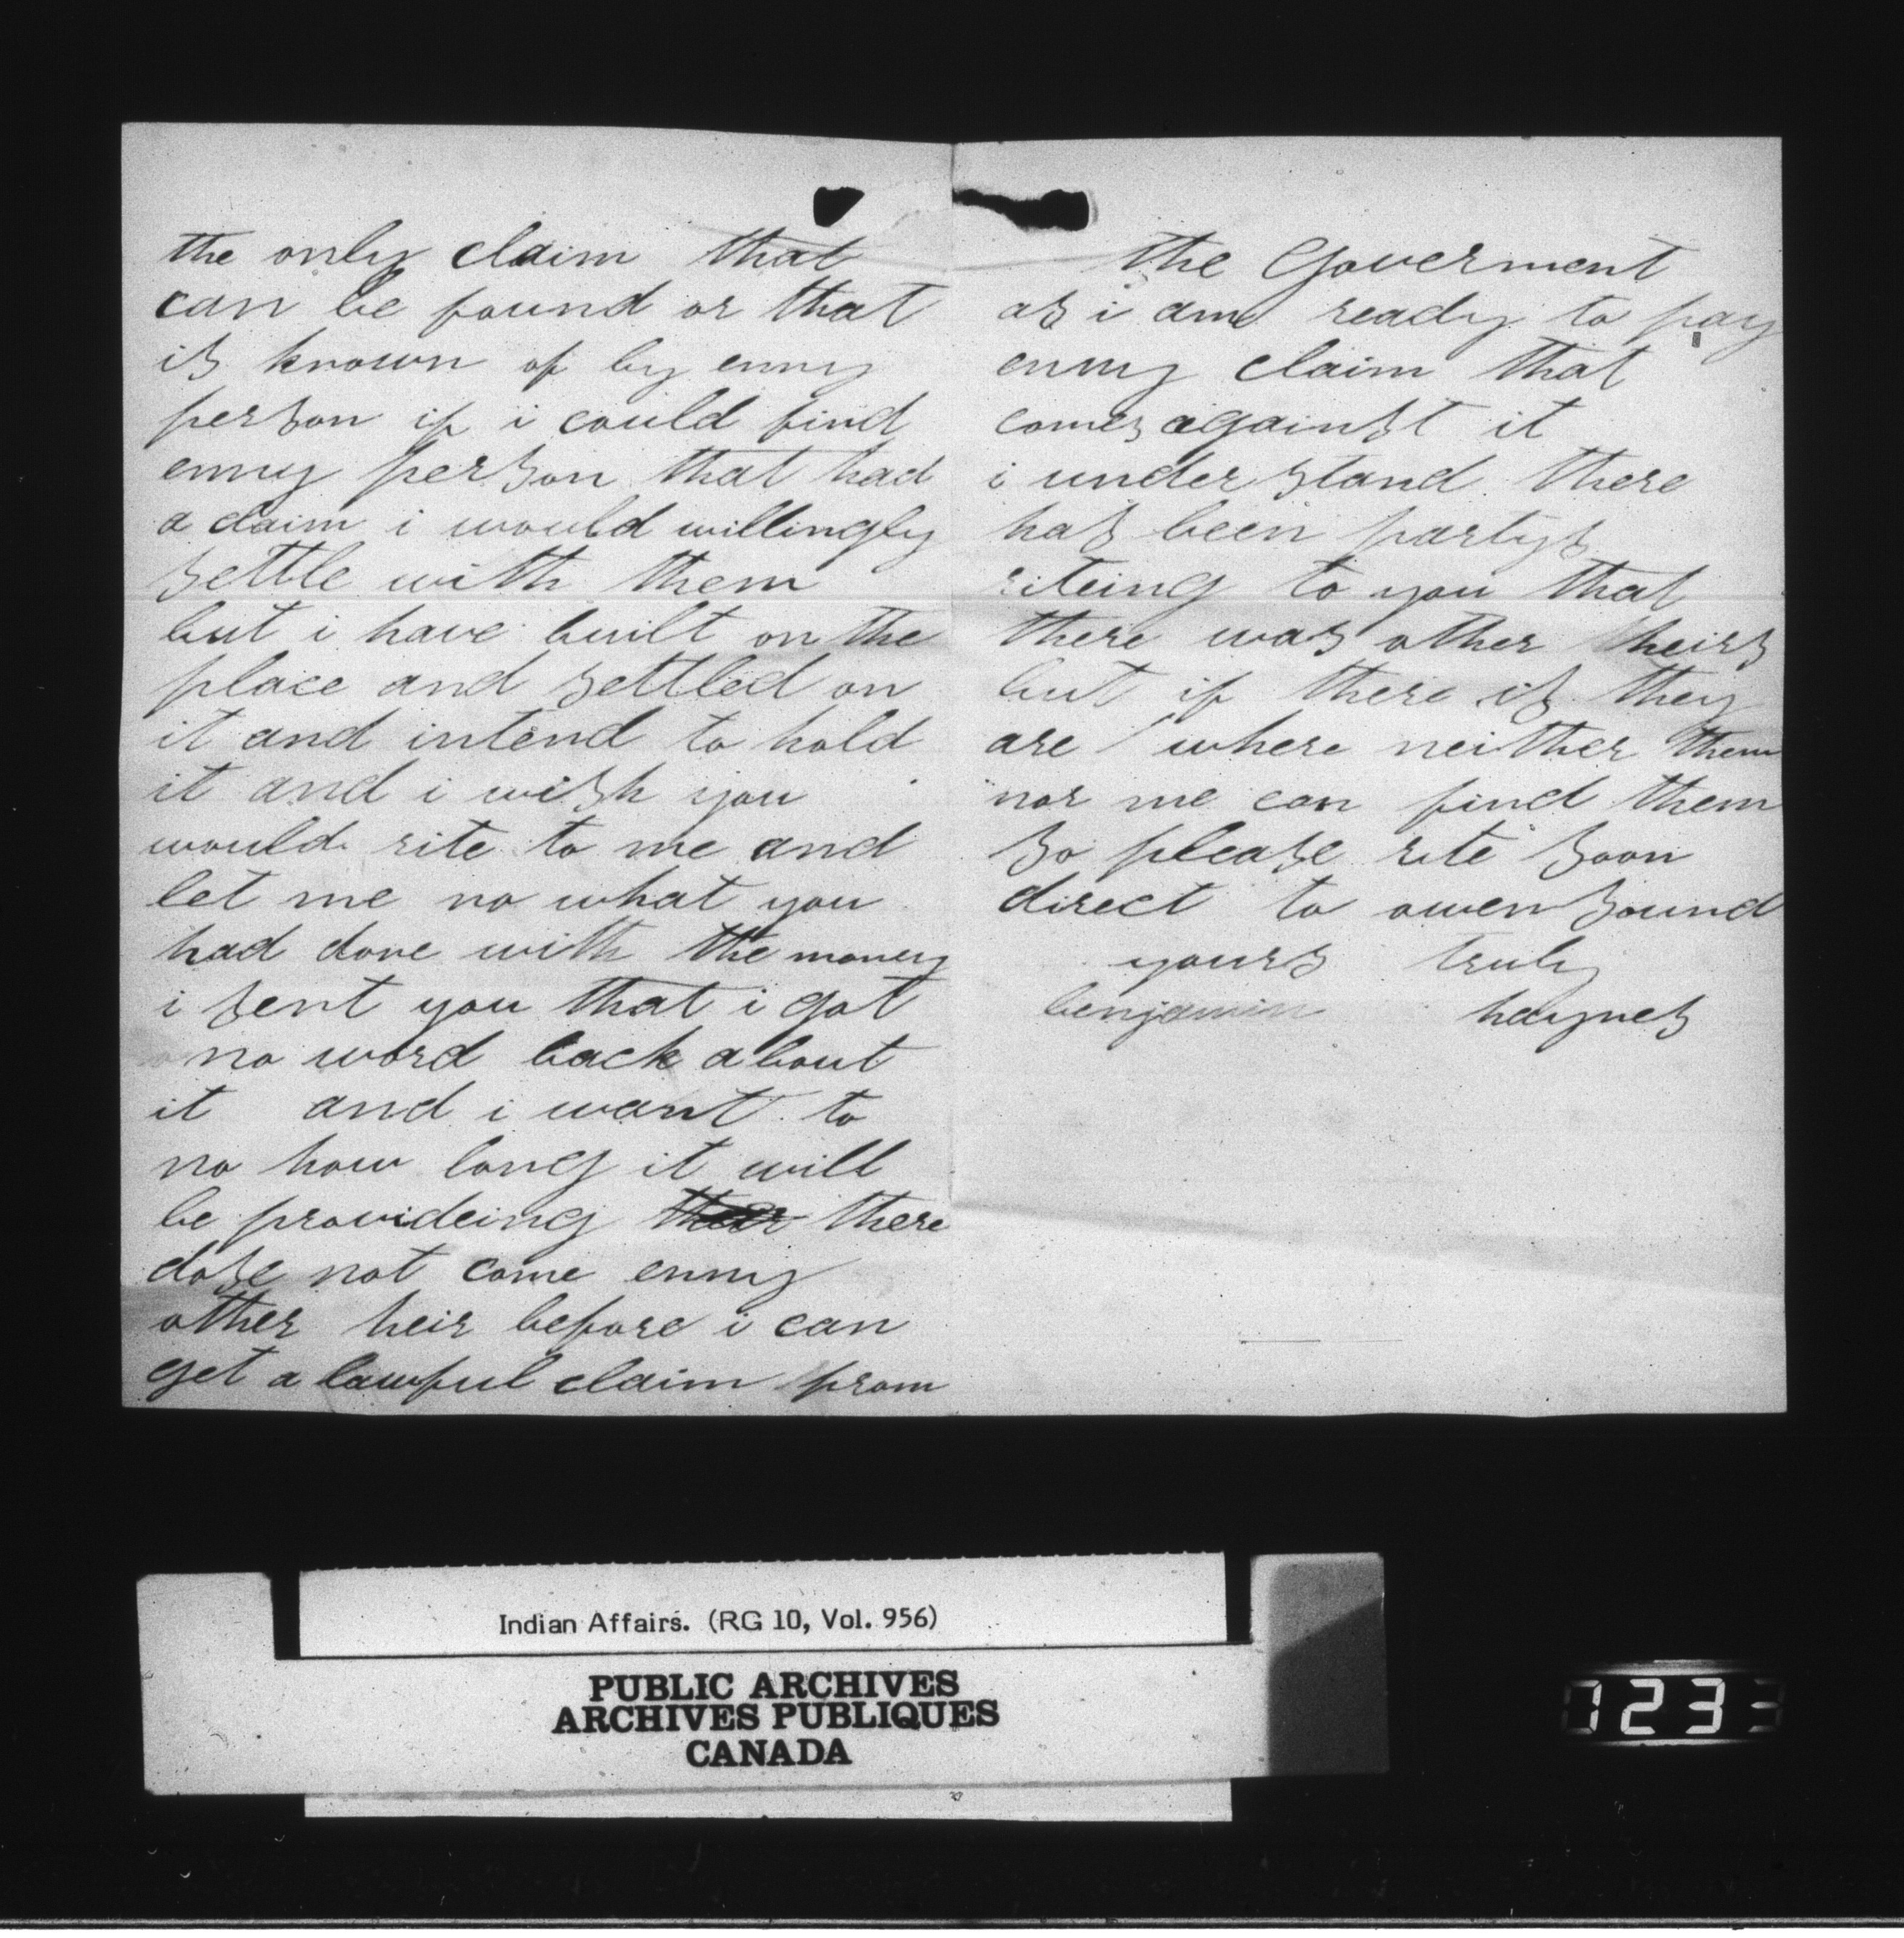 the only claim that
can be found or that
is known of by enny
person if i could find
enny person that had
a claim i would willingly
settle with them
but i have built on the
place and settled on
it and intend to hold
it and i wish you
would rite to me and
let me no what you
had done with the money
i sent you that i got
no word back about
it and i want to
no how long it will
be provideing their there
dose not come enny
other heir before i can
get a lawful claim from
the Goverment
as i am ready to pay
enny claim that
comes against it
i understand there
has been partys
riteing to you that
there was other heirs
but if there is they
are where neither them
nor me can find them
so please rite soon
direct to owen sound
yours truly
benjamin haynes
Indian Affairs. (RG 10, Vol. 956)
PUBLIC ARCHIVES
ARCHIVES PUBLIQUES
CANADA
1233